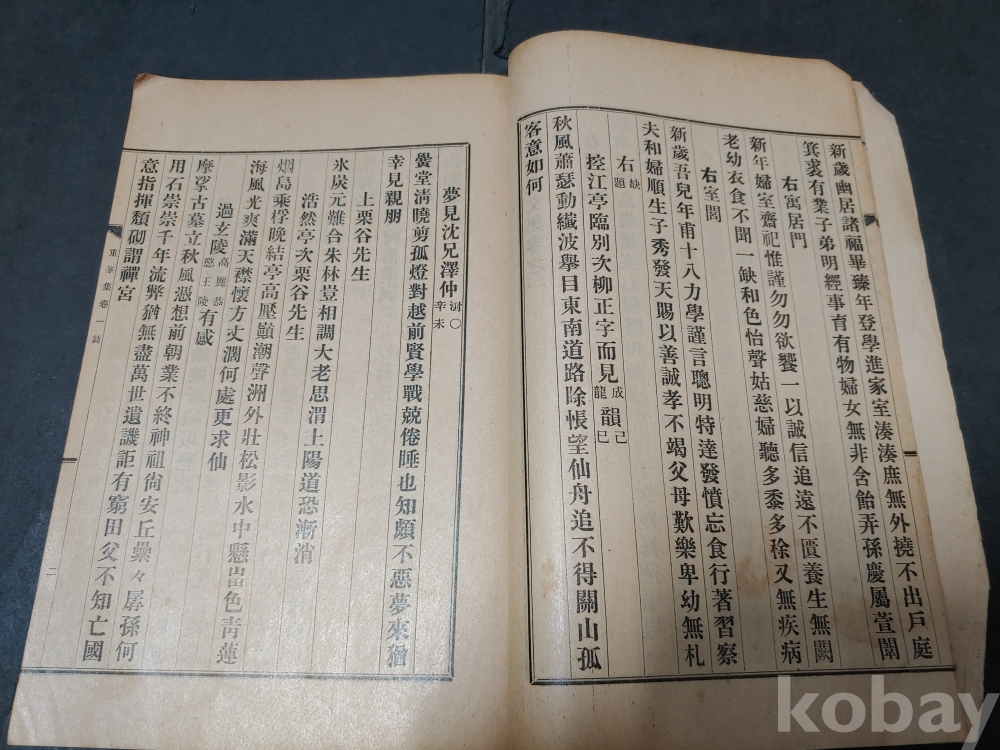 新歲幽居諸福畢臻年登學進家室湊湊庶無外撓不出戶庭
箕裘有業子弟明經事育有物婦女無非含飴弄孫慶屬萱闈
右寓居門
新年婦室齋祀惟謹勿勿欲饗一以誠信追遠不匱養生無闕
老幼衣食不聞一缺和色怡聲姑慈婦聽多黍多稌又無疾病
右室閤
新歲吾兒年甫十八力學謹言聰明特達發憤忘食行著習察
夫和婦順生子秀發天賜以善誠孝不竭父母歎樂卑幼無札
右缺題
控江亭臨別次柳正字而見成龍韻己巳
秋風蕭瑟動纖波擧目東南道路除悵望仙舟追不得關山孤
客意如何
夢見沈兄澤仲澍〇辛未
曇堂淸曉剪孤燈對越前賢學戰兢倦睡也知頗不惡夢來猶
幸見親朋
上栗谷先生
氷炭元難合朱林豈相調大老思渭上陽道恐漸消
浩然亭次栗谷先生
烟島乘桴晚結亭高壓巓潮聲洲外壯松影水中懸岀色靑蓮
海風光爽滿天襟懷方丈濶何處更求仙
過玄陵高麗恭愍王陵有感
摩挲古墓立秋風憑想前朝業不終神祖尙安丘壘々孱孫何
用石崇崇千年流弊猶無盡萬世遺譏詎有窮田父不知亡國
意指揮頹砌謂禪宮
重峯集卷一詩
二
kobay